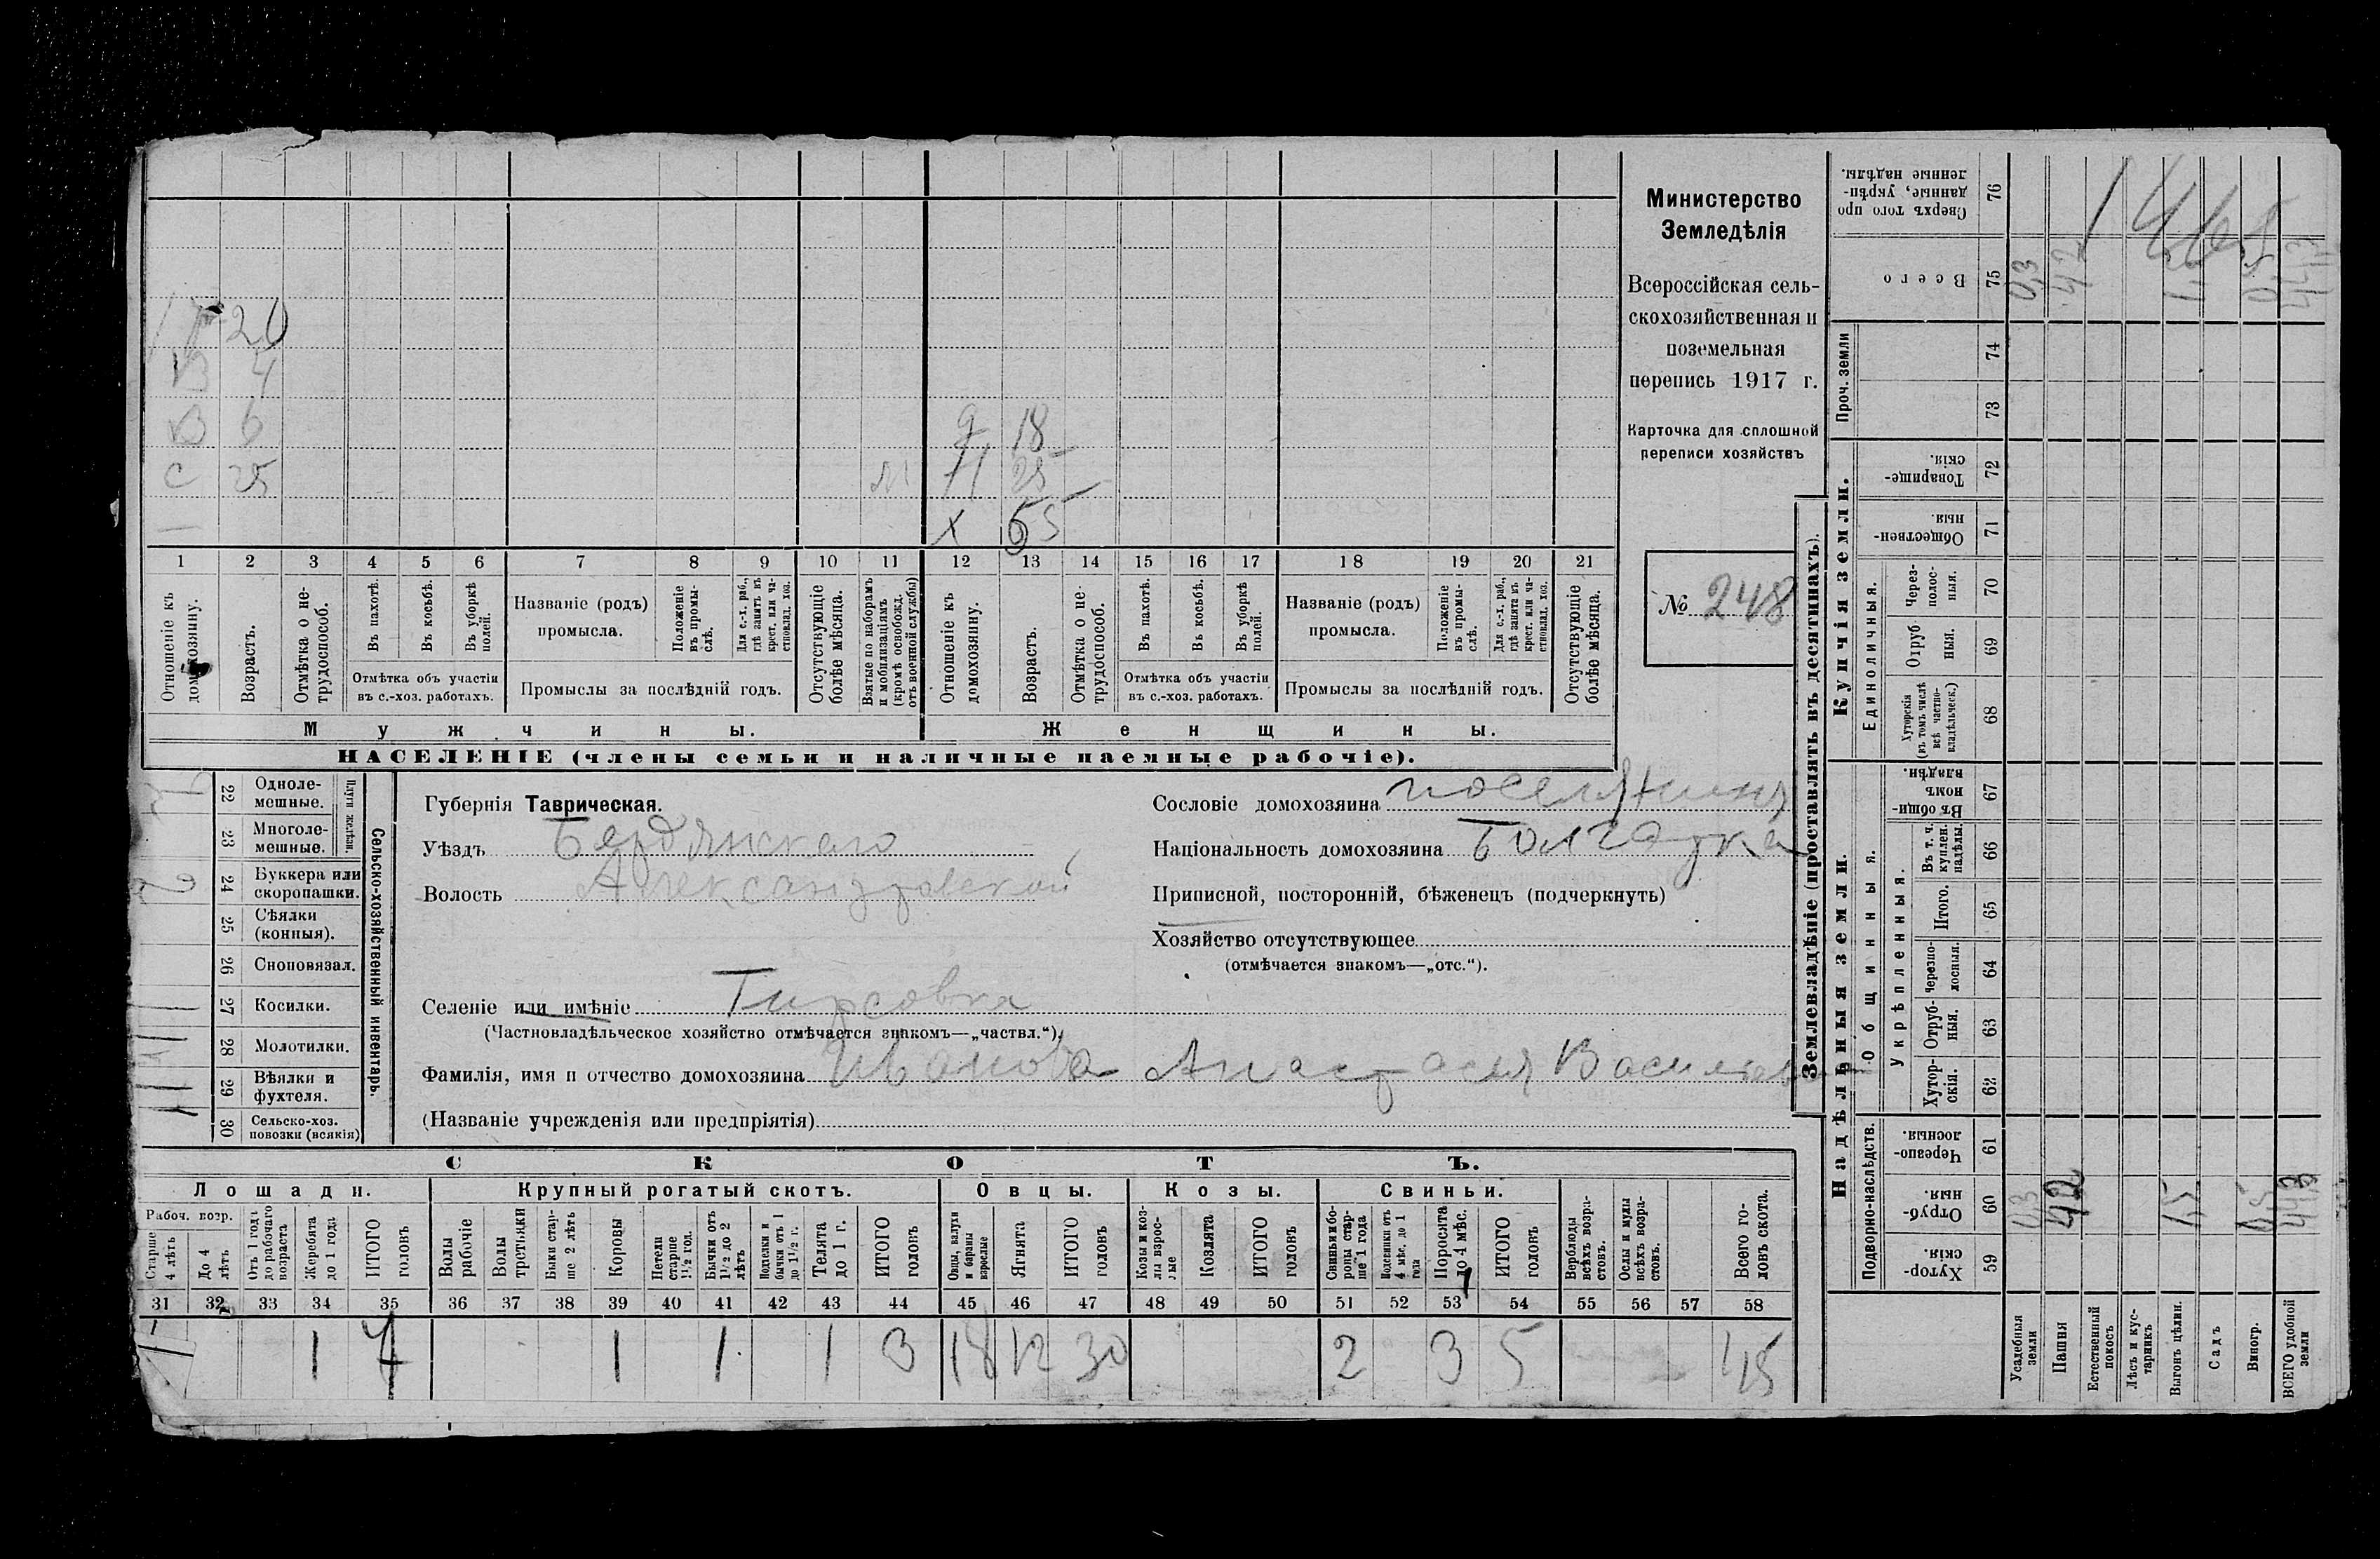 17 20
В 4
В 6 9 18
С 25 М Н 25
— х 65
1 2 3 4 5 6 7 8 9 10 11 12 13 14 15 16 17 18 19 20 21
Отношеніе къ домохозяину.
Возрастъ.
Отмѣтка о не-
трудоспособ.
Въ пахотѣ.
Въ косьбѣ.
Въ уборкѣ полей.
Отмѣтка объ участіи
въ с.-хоз. работахъ.
Названіе (родъ)
промысла.
Положеніе въ промы-
слѣ.
Для с.-х. раб.,
гдѣ занятъ въ
крест. или ча-
стновлад. хоз.
Промыслы за послѣдній годъ.
Отсутствующіе
болѣе мѣсяца.
Взятые по наборамъ
и мобилизаціямъ
(кромѣ освобожд.
отъ военной службы)
Отношеніе къ
домохозяину.
Возрастъ.
Отмѣтка о не-
трудоспособ.
Въ пахотѣ.
Въ косьбѣ.
Въ уборкѣ
полей.
Отмѣтка объ участіи
въ с.-хоз. работахъ.
Названіе (родъ)
промысла.
Положеніе
въ промы-
слѣ.
Для с.-х. раб.,
гдѣ занята въ
крест. или ча-
стновлад. хоз.
Промыслы за послѣдній годъ.
Отсутствующіе
болѣе мѣсяца.
Мужчины. Женщины.
НАСЕЛЕНІЕ (члены семьи и наличные наемные рабочіе).
Министерство
Земледѣлія
Всероссійская сель-
скохозяйственная и
поземельная
перепись 1917 г.
Карточка для сплошной
переписи хозяйствъ
№ 248
22 Одноле-
мешные.
23 Многоле-
мешные.
Плуги желѣзн.
24 Буккера или
скоропашки.
25 Сѣялки
(конныя).
26 Сноповязал.
27 Косилки.
28 Молотилки.
29 Вѣялки и
фухтеля.
30 Сельско-хоз.
повозки (всякія)
Сельско-хозяйственный инвентарь.
Губернія Таврическая.
Уѣздъ Бердянскаго
Волость Александровской
Селеніе или имѣніе Тирсовка
(Частновладѣльческое хозяйство отмѣчается знакомъ—„частвл.“).
Фамилія, имя и отчество домохозяина Иванова Анастасия Василиева
(Названіе учрежденія или предпріятія)
Сословіе домохозяина поселянина
Національность домохозяина Болгарка
Приписной, посторонній, бѣженецъ (подчеркнуть)
Хозяйство отсутствующее
(отмѣчается знакомъ—„отс.“).
СКОТЪ.
Лошади. Крупный рогатый скотъ. Овцы. Козы. Свиньи.
Рабоч. возр.
Старше
4 лѣтъ
До 4
лѣтъ
Отъ 1 года
до рабочаго
возраста
Жеребята
до 1 года
ИТОГО
головъ
Волы
рабочіе
Волы
третьяки
Быки стар-
ше 2 лѣтъ
Коровы
Нетели
старше
1½ год.
Бычки отъ
1½ до 2
лѣтъ
Подтелки и
бычки отъ 1
до 1½ г.
Телята
до 1 г.
ИТОГО
головъ
Овцы, валухи
и бараны
взрослые
Ягнята
ИТОГО
головъ
Козы и коз-
лы взрос-
лые
Козлята
ИТОГО
головъ
Свиньи и бо-
ровы стар-
ше 1 года
Подсвинки отъ
4 мѣс. до 1
года
Поросята
до 4 мѣс.
ИТОГО
головъ
Верблюды
всѣхъ возра-
стовъ.
Ослы и мулы
всѣхъ возра-
стовъ.
Всего го-
ловъ скота.
31 32 33 34 35 36 37 38 39 40 41 42 43 44 45 46 47 48 49 50 51 52 53 54 55 56 57 58
1 7 1 1 1 3 18 12 30 2 3 5 45
Землевладѣніе (проставлять въ десятинахъ).
Надѣльныя земли. Купчія земли. Проч. земли
Подворно-наслѣдств. Общинныя. Единоличныя.
Укрѣпленныя.
Хутор-
скія. 59
Отруб-
ныя. 60
Черезпо-
лосныя. 61
Хутор-
скія. 62
Отруб-
ныя. 63
Черезпо-
лосныя. 64
Итого. 65
Въ т. ч.
куплен.
надѣлы. 66
Въ общи-
номъ
владѣн. 67
Хуторскія
(въ томъ числѣ
всѣ частно-
владѣльческ.) 68
Отруб
ныя. 69
Через-
полос-
ныя. 70
Обществен-
ныя. 71
Товарище-
скія. 72
73
74
Всего 75
Сверхъ того про
данные, укрѣп-
ленные надѣлы. 76
Усадебныя
земли 0,3 0,3
Пашня 42 42
Естественный
покосъ
Лѣсъ и кус-
тарникъ
Выгонъ цѣлин. 1,5
Садъ
Виногр. 0,5
ВСЕГО удобной
земли 44,3 44,3